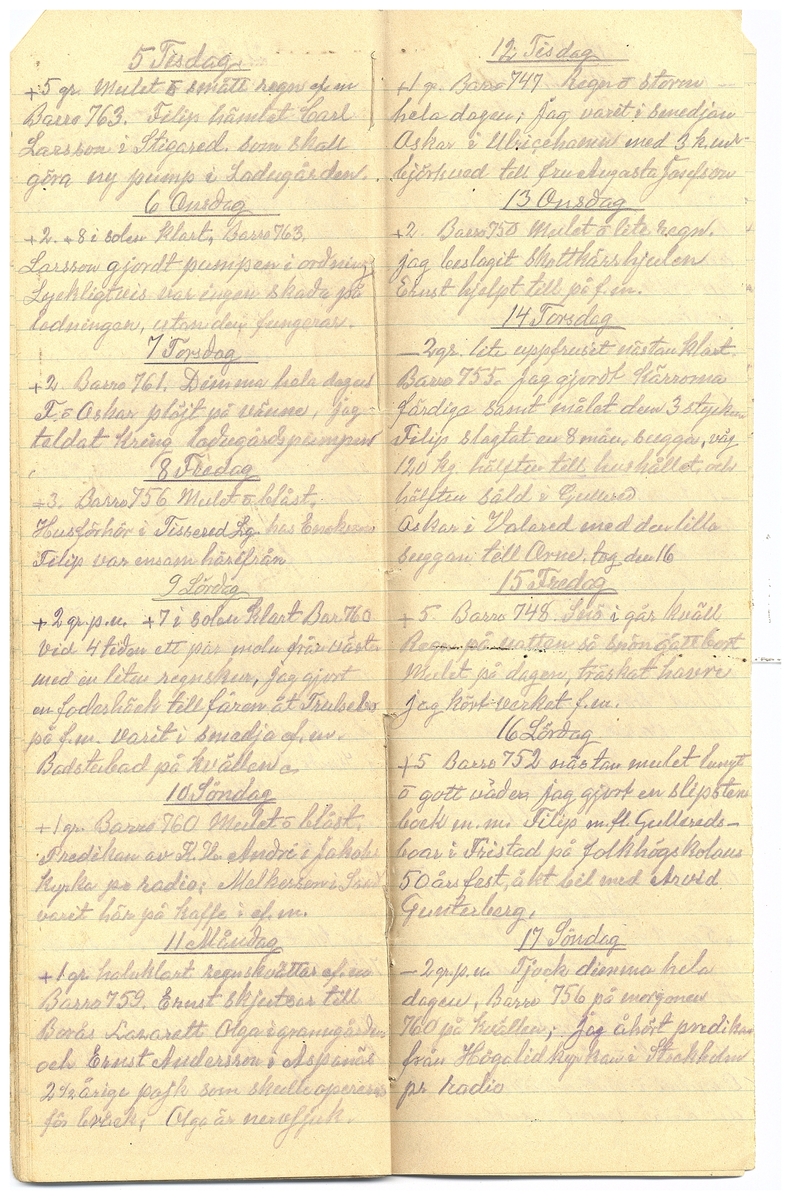 5 Tisdag
+5 gr. Mulet o smått regn ef.m
Barro 763. Filip hämtet Carl
Larsson i Stigared. som skall
göra ny pump i Ladugården.
6 Onsdag
+2. +8 i solen klart, Barro 763.
Larsson gjordt pumpen i ordning
Lyckligtvis var ingen skada på
ledningen, utan den fungerar.
7 Torsdag
+2 Barro 761. Dimma hela dagen
F. o Oskar plöjt på vänne, jag
täldat kring ladugårdspumpen
8 Fredag
+3. Barro 756 Mulet o blåst.
Husförhör i Tissered Lg. hos
Filip var ensam härifrån
9 Lördag
+2 gr. f.m. +7 i solen klart Bar 760
vid 4 tiden ett par moln från väster
med en liten regnskur, Jag gjort
en foderhäck till fåren åt Trulsebo
på f.m. varit i smedja ef.m.
Badstubad på kvällen
10 Söndag
+1 gr. Barro 760 Mulet o blåst.
Predikan av K. H. André i Jakobs
Kyrka pr radio; Melkersson i
varit här på kaffe i ef.m.
11 Måndag
+1 gr. halvklart regnskvättar ef.m
Barro 759. Ernst skjutsar till
Borås Lazarett Olga i gramgården
och Ernst Andersson i Aspanäs
2½ årige pojk som skulle opereras
för bråck; Olga är nervsjuk.
12 Tisdag
+1 gr. Barro 747 Regn o storm
hela dagen; Jag varit i smedjan
Oskar i Ulricehamn med 3 k.m
björkved till fru Augusta Josefson
13 Onsdag
+2. Barro 750 Mulet o lite regn.
jag beslagit skottkärrshjulen
Ernst hjelpt till på f.m.
14 Torsdag
—2 gr. lite uppfruset nästan klart.
Barro 755. Jag gjordt kärrorna
färdiga samt målat dem 3 stycken
Filip slagtat en 8 mån. sugga, väg
120 kg hälften till hushållet, och
hälften såld i Gullered
Oskar i Valared med den lilla
suggan till Orne. tog den 16
15 Fredag
+5. Barro 748. Snö i går kväll
Regn på natten så snön gått bort
Mulet på dagen, tröskat havre
jag kört verket f.m.
16 Lördag
+5 Barro 752 nästan mulet lungt
o gott väder. jag gjort en slipstens
bock m.m. Filip m.fl. Gullereds—
boar i Fristad på folkhögskolans
50 års fest, åkt bil med Arvid
Gunterberg.
17 Söndag
—2 gr. f.m. Tjock dimma hela
dagen, Barro 756 på morgonen
760 på kvällen; Jag åhört predikan
från Högalidkyrkan i Stockholm
pr radio